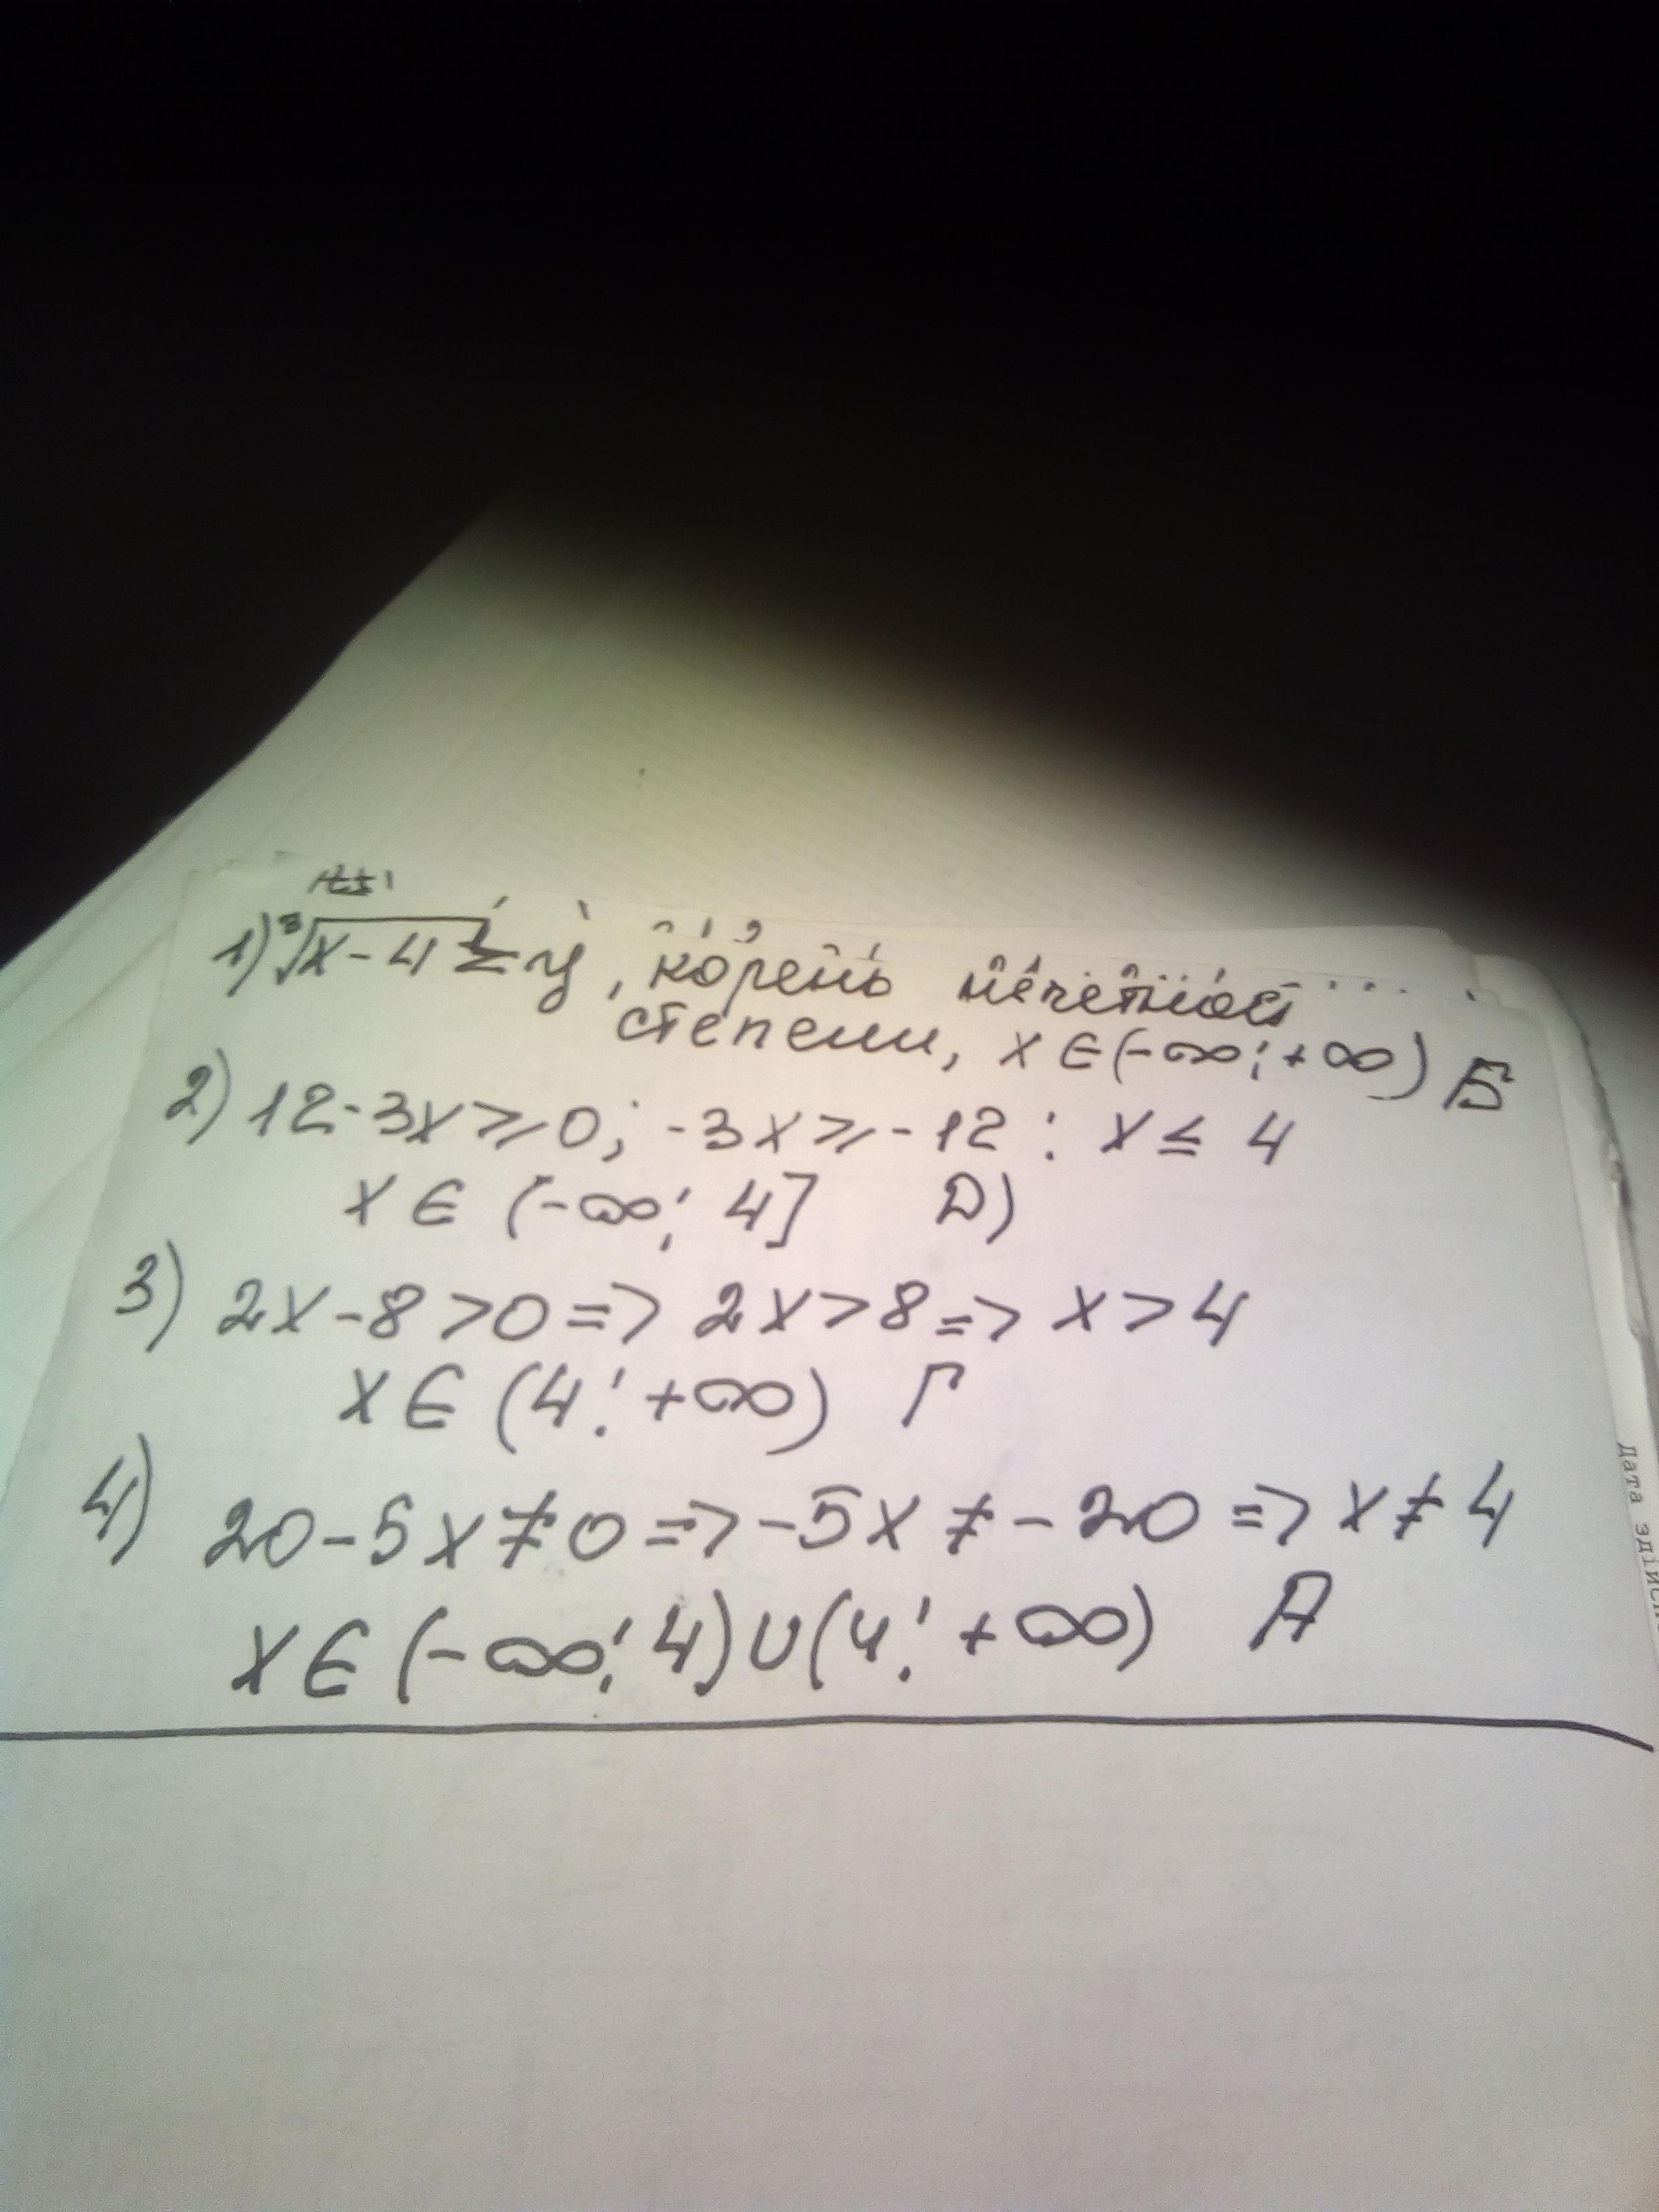 1) ∛x-4 = y, корень нечетной
степени, x ∈ (-∞; +∞) Б
2) 12-3x ⩾ 0; -3x ⩾ -12; x ≤ 4
x ∈ (-∞; 4] Д)
3) 2x-8 > 0 => 2x > 8 => x > 4
x ∈ (4; +∞) Г
4) 20-5x ≠ 0 => -5x ≠ -20 => x ≠ 4
x ∈ (-∞; 4) ∪ (4; +∞) А
Дата здійсн